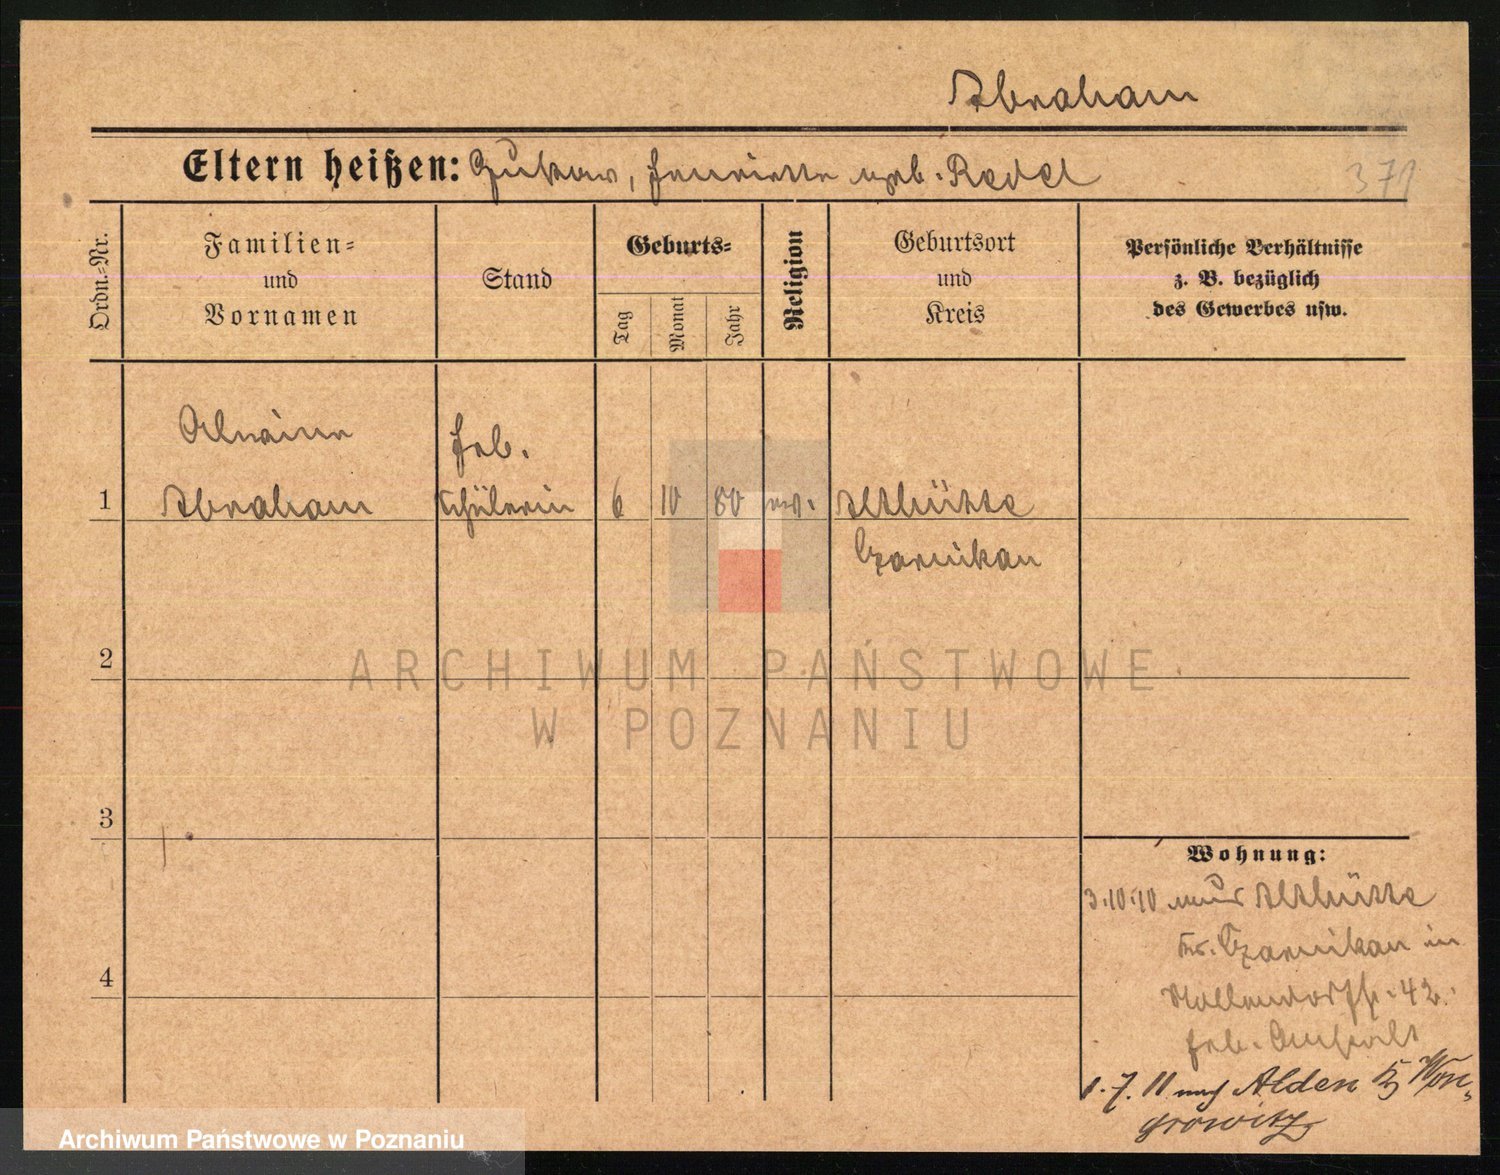 Abraham
Eltern heißen: Gustav, Henriette geb. Radel
371
Ordn.-Nr.
Familien-
und
Vornamen
Stand
Geburts-
Tag
Monat
Jahr
Religion
Geburtsort
und
Kreis
Persönliche Verhältnisse
z. B. bezüglich
des Gewerbes usw.
Heb.
1 Abraham Schülerin 6 10 80 ev. Althütte
Czarnikau
2
ARCHIWUM PAŃSTWOWE
W POZNANIU
3
Wohnung:
3.10.10 Althütte
Kr. Czarnikau in
42.
4
Heb. Anstalt
1.7.11 nach Alden Kr Won-
growitz
Archiwum Państwowe w Poznaniu